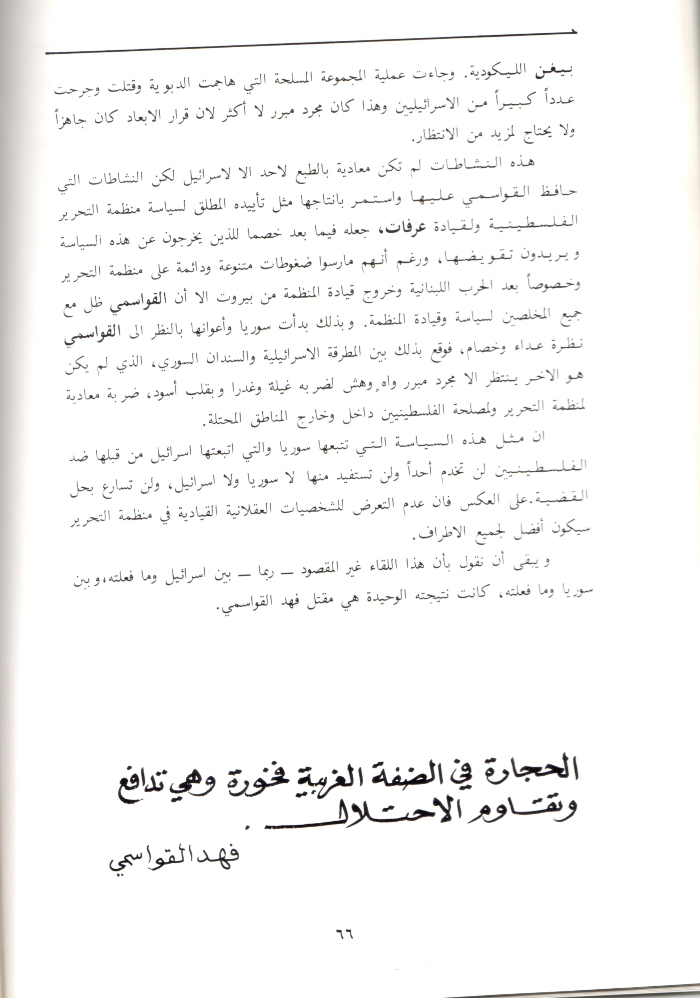 بـيـغـن الليـكودية. وجاءت عملية المجموعة المسلحة التي هاجمت الدبوية وقتلت وجرحت
عـدداً كـبـيـراً مـن الاسرائيليين وهذا كان مجرد مبرر لا أكثر لان قرار الابعاد كان جاهزاً
ولا يحتاج لمزيد من الانتظار.
هـذه النـشـاطات لم تكن معادية بالطبع لاحد الا لاسرائيل لكن النشاطات التي
حـافـظ القـواسـمـي عليـهـا واسـتـمـر بانتاجها مثل تأييده المطلق لسياسة منظمة التحرير
الفـلـسـطـيـنـيـة ولقـيادة عرفات، جعله فيما بعد خصما للذين يخرجون عن هذه السياسة
و يـريـدون تـقـويـضـهـا، ورغـم أنـهـم مارسوا ضغوطات متنوعة ودائمة على منظمة التحرير
وخـصـوصاً بعد الحرب اللبنانية وخروج قيادة المنظمة من بيروت الا أن القواسمي ظل مع
جميع المخلصين لسياسة وقيادة المنظمة. و بذلك بدأت سوريا وأعوانها بالنظر الى القواسمي
نـظـرة عـداء وخصام، فوقع بذلك بين المطرقة الاسرائيلية والسندان السوري، الذي لم يكن
هـو الاخـر يـنـتظر الا مجرد مبرر واهٍ وهش لضربه غيلة وغدرا و بقلب أسود، ضر بة معادية
لمنظمة التحرير ولمصلحة الفلسطينيين داخل وخارج المناطق المحتلة.
ان مـثـل هـذه السـيـاسـة التـي تتبعها سوريا والتي اتبعتها اسرائيل من قبلها ضد
الفـلـسـطـيـنـيـين لن تخدم أحداً ولن تستفيد منها لا سوريا ولا اسرائيل، ولن تسارع بحل
القـضـيـة.على العكس فان عدم التعرض للشخصيات العقلانية القيادية في منظمة التحرير
سيكون أفضل لجميع الاطراف.
و يبقى أن نقول بأن هذا اللقاء غير المقصود ــ ربما ــ بين اسرائيل وما فعلته،و بين
سوريا وما فعلته، كانت نتيجته الوحيدة هي مقتل فهد القواسمي.
الحجارة في الضفة الغربية فخورة وهي تدافع
وتقـاوم الاحـتـلال .
فهد القواسمي
٦٦